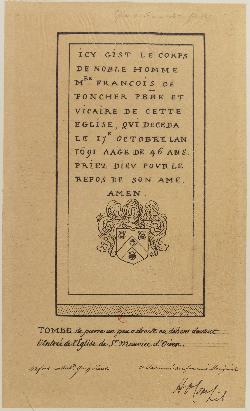 ICY GIST LE CORPS
DE NOBLE HOMME
Mre FRANCOIS DE
PONCHER PBRE ET
VICAIRE DE CETTE
EGLISE, QUI DECEDA
LE 17e OCTOBRE LAN
1691 AAGE DE 46 ANS.
PRIEZ DIEU POUR LE
REPOS DE SON AME
AMEN.
TOMBE de pierre un peu a droite au dehors devant
l'entrée de l'Eglise de St. Maurice d'Oiron.